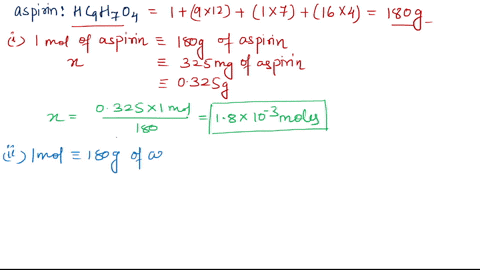 aspirin: HC9H7O4 = 1+(9×12) + (1×7) + (16×4) = 180g
(i) 1 mol of aspirin ≡ 180g of aspirin
x ≡ 325mg of aspirin
≡ 0.325g
x = 0.325×1mol / 180 = 1.8×10⁻³ moles
(ii) 1mol ≡ 180g of as